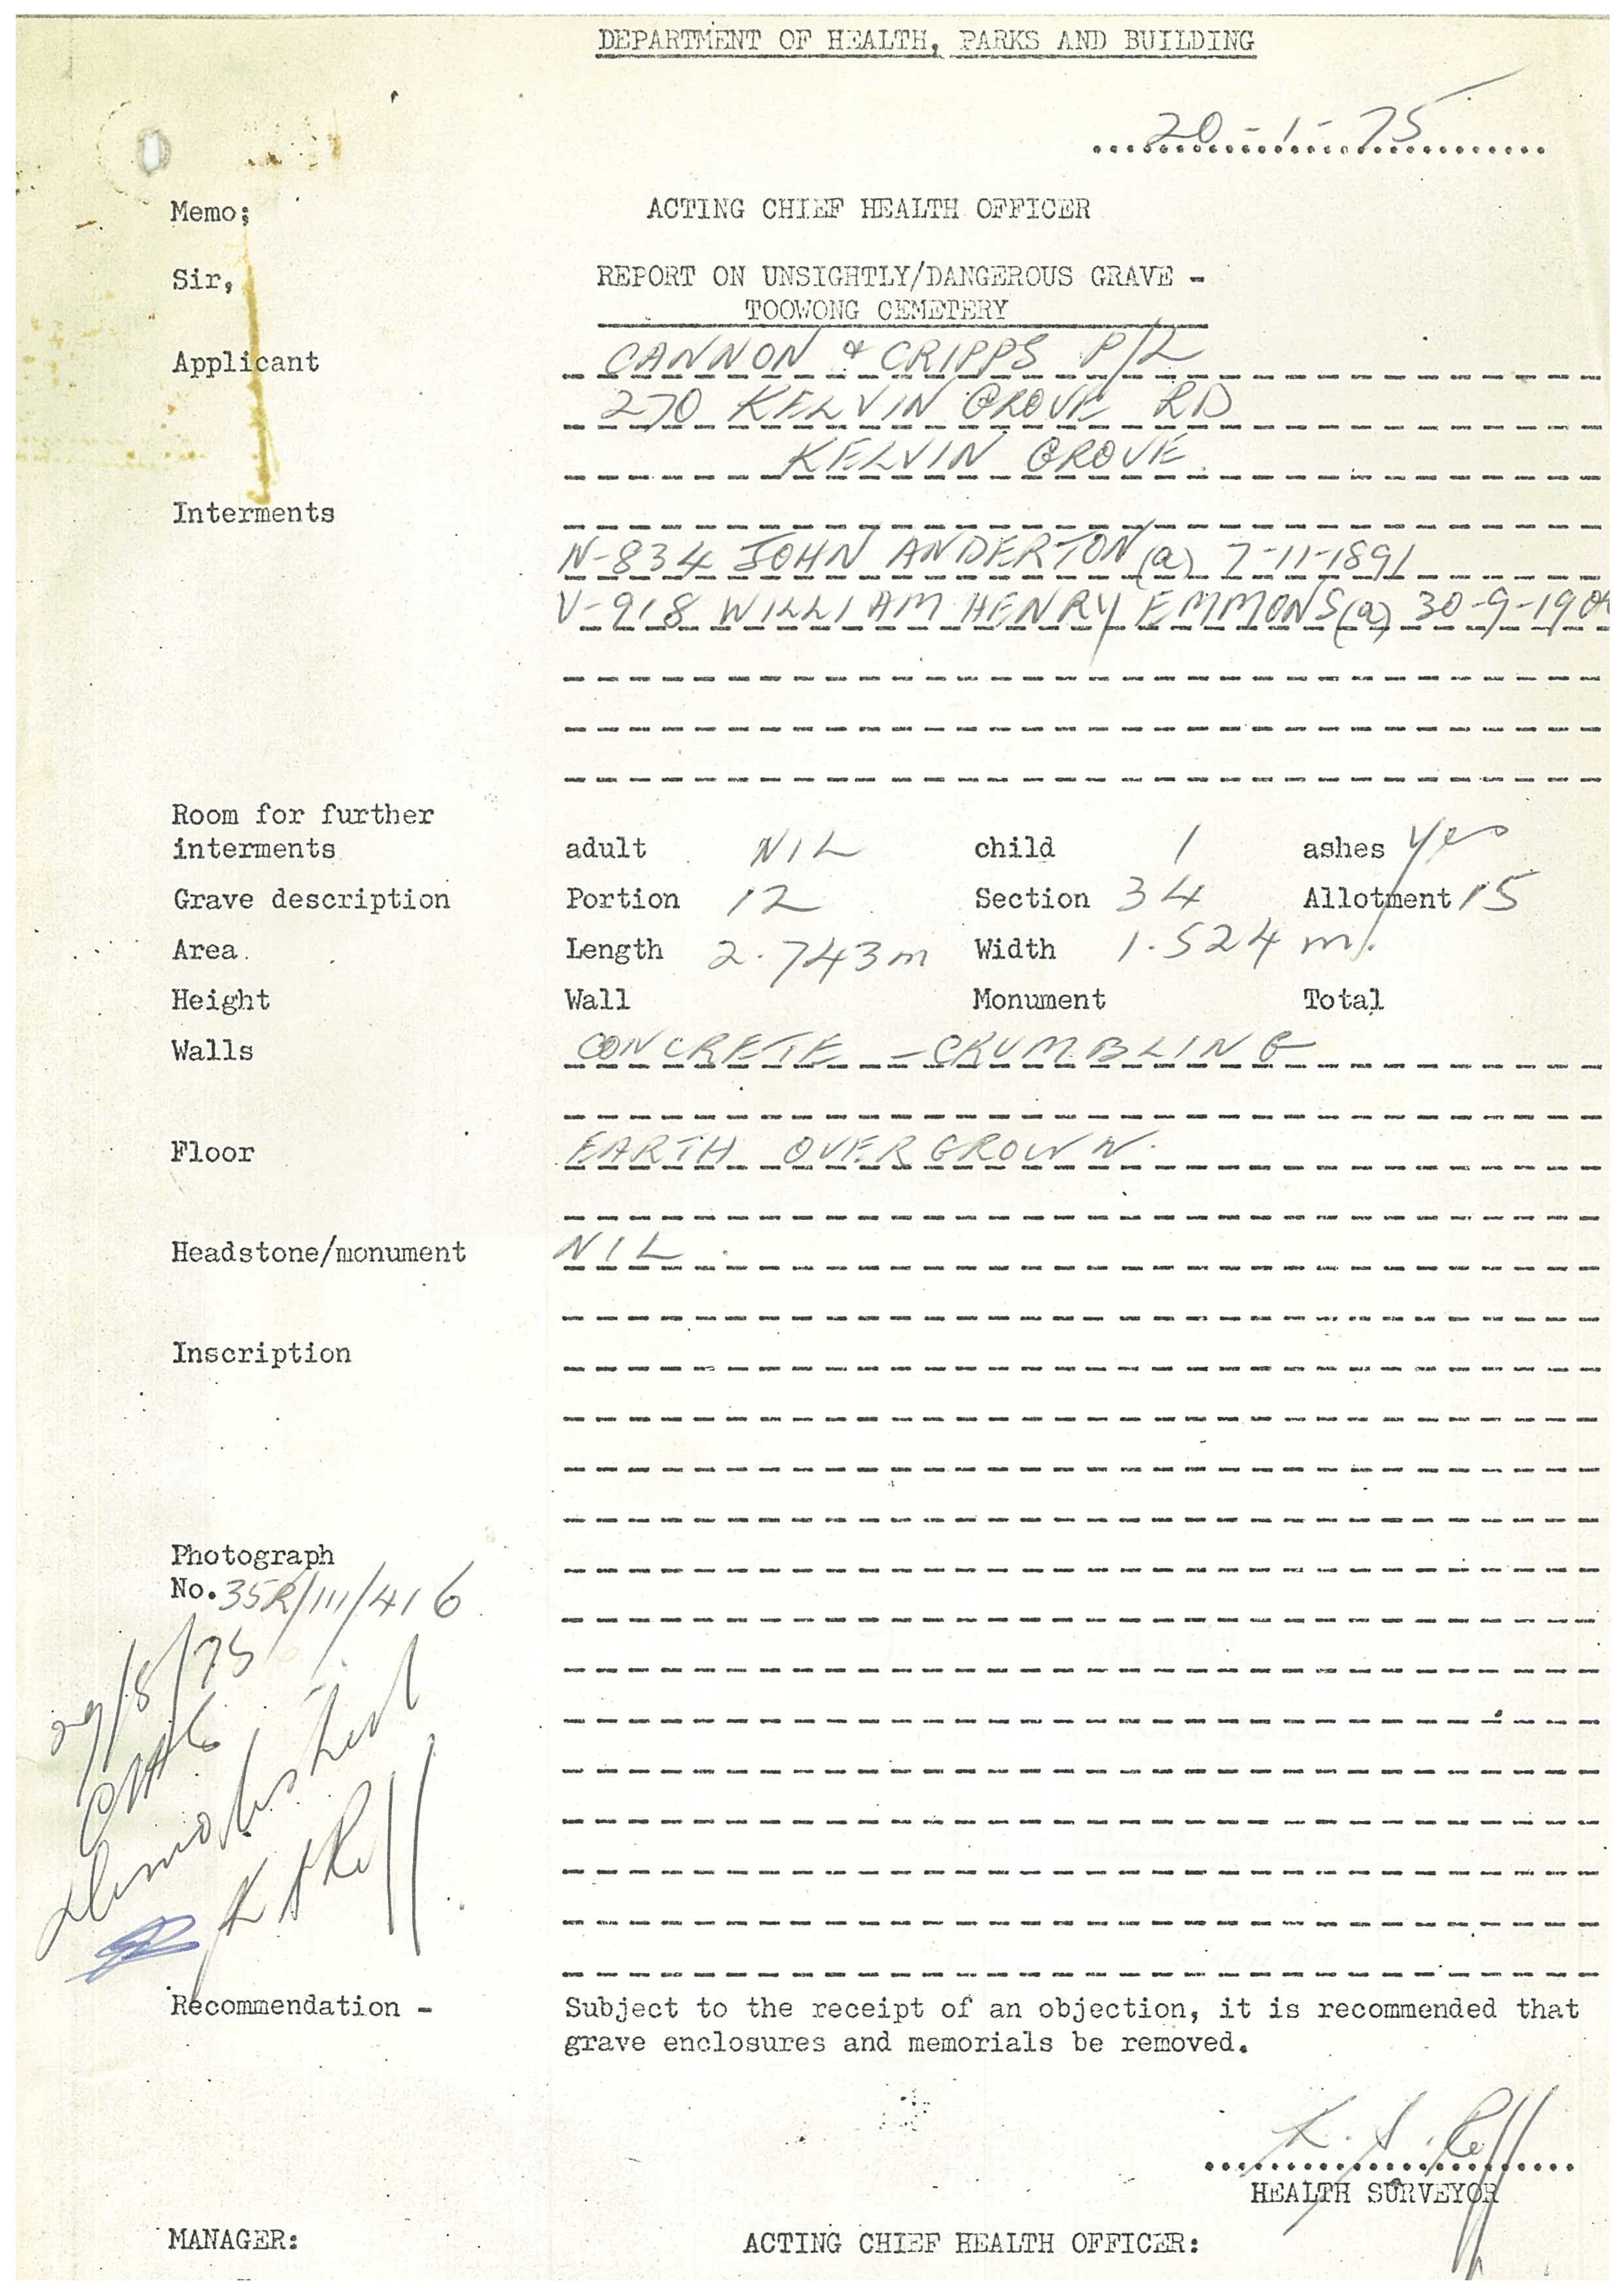 DEPARTMENT OF HEALTH, PARKS AND BUILDING
20-1-75
Memo; ACTING CHIEF HEALTH OFFICER
Sir, REPORT ON UNSIGHTLY/DANGEROUS GRAVE -
TOOWONG CEMETERY
Applicant CANNON & CRIPPS P/L
270 KELVIN GROVE RD
KELVIN GROVE
Interments
N-834 JOHN ANDERTON (a) 7-11-1891
V-918 WILLIAM HENRY EMMONS (a) 30-9-190
Room for further
interments adult NIL child 1 ashes yes
Grave description Portion 12 Section 34 Allotment 15
Area. Length 2.743m Width 1.524 m.
Height Wall Monument Total
Walls CONCRETE - CRUMBLING
Floor EARTH OVERGROWN.
Headstone/monument NIL.
Inscription
Photograph
No. 35R/111/416
29/8/75
Demolished
Recommendation - Subject to the receipt of an objection, it is recommended that
grave enclosures and memorials be removed.
HEALTH SURVEYOR
MANAGER: ACTING CHIEF HEALTH OFFICER: